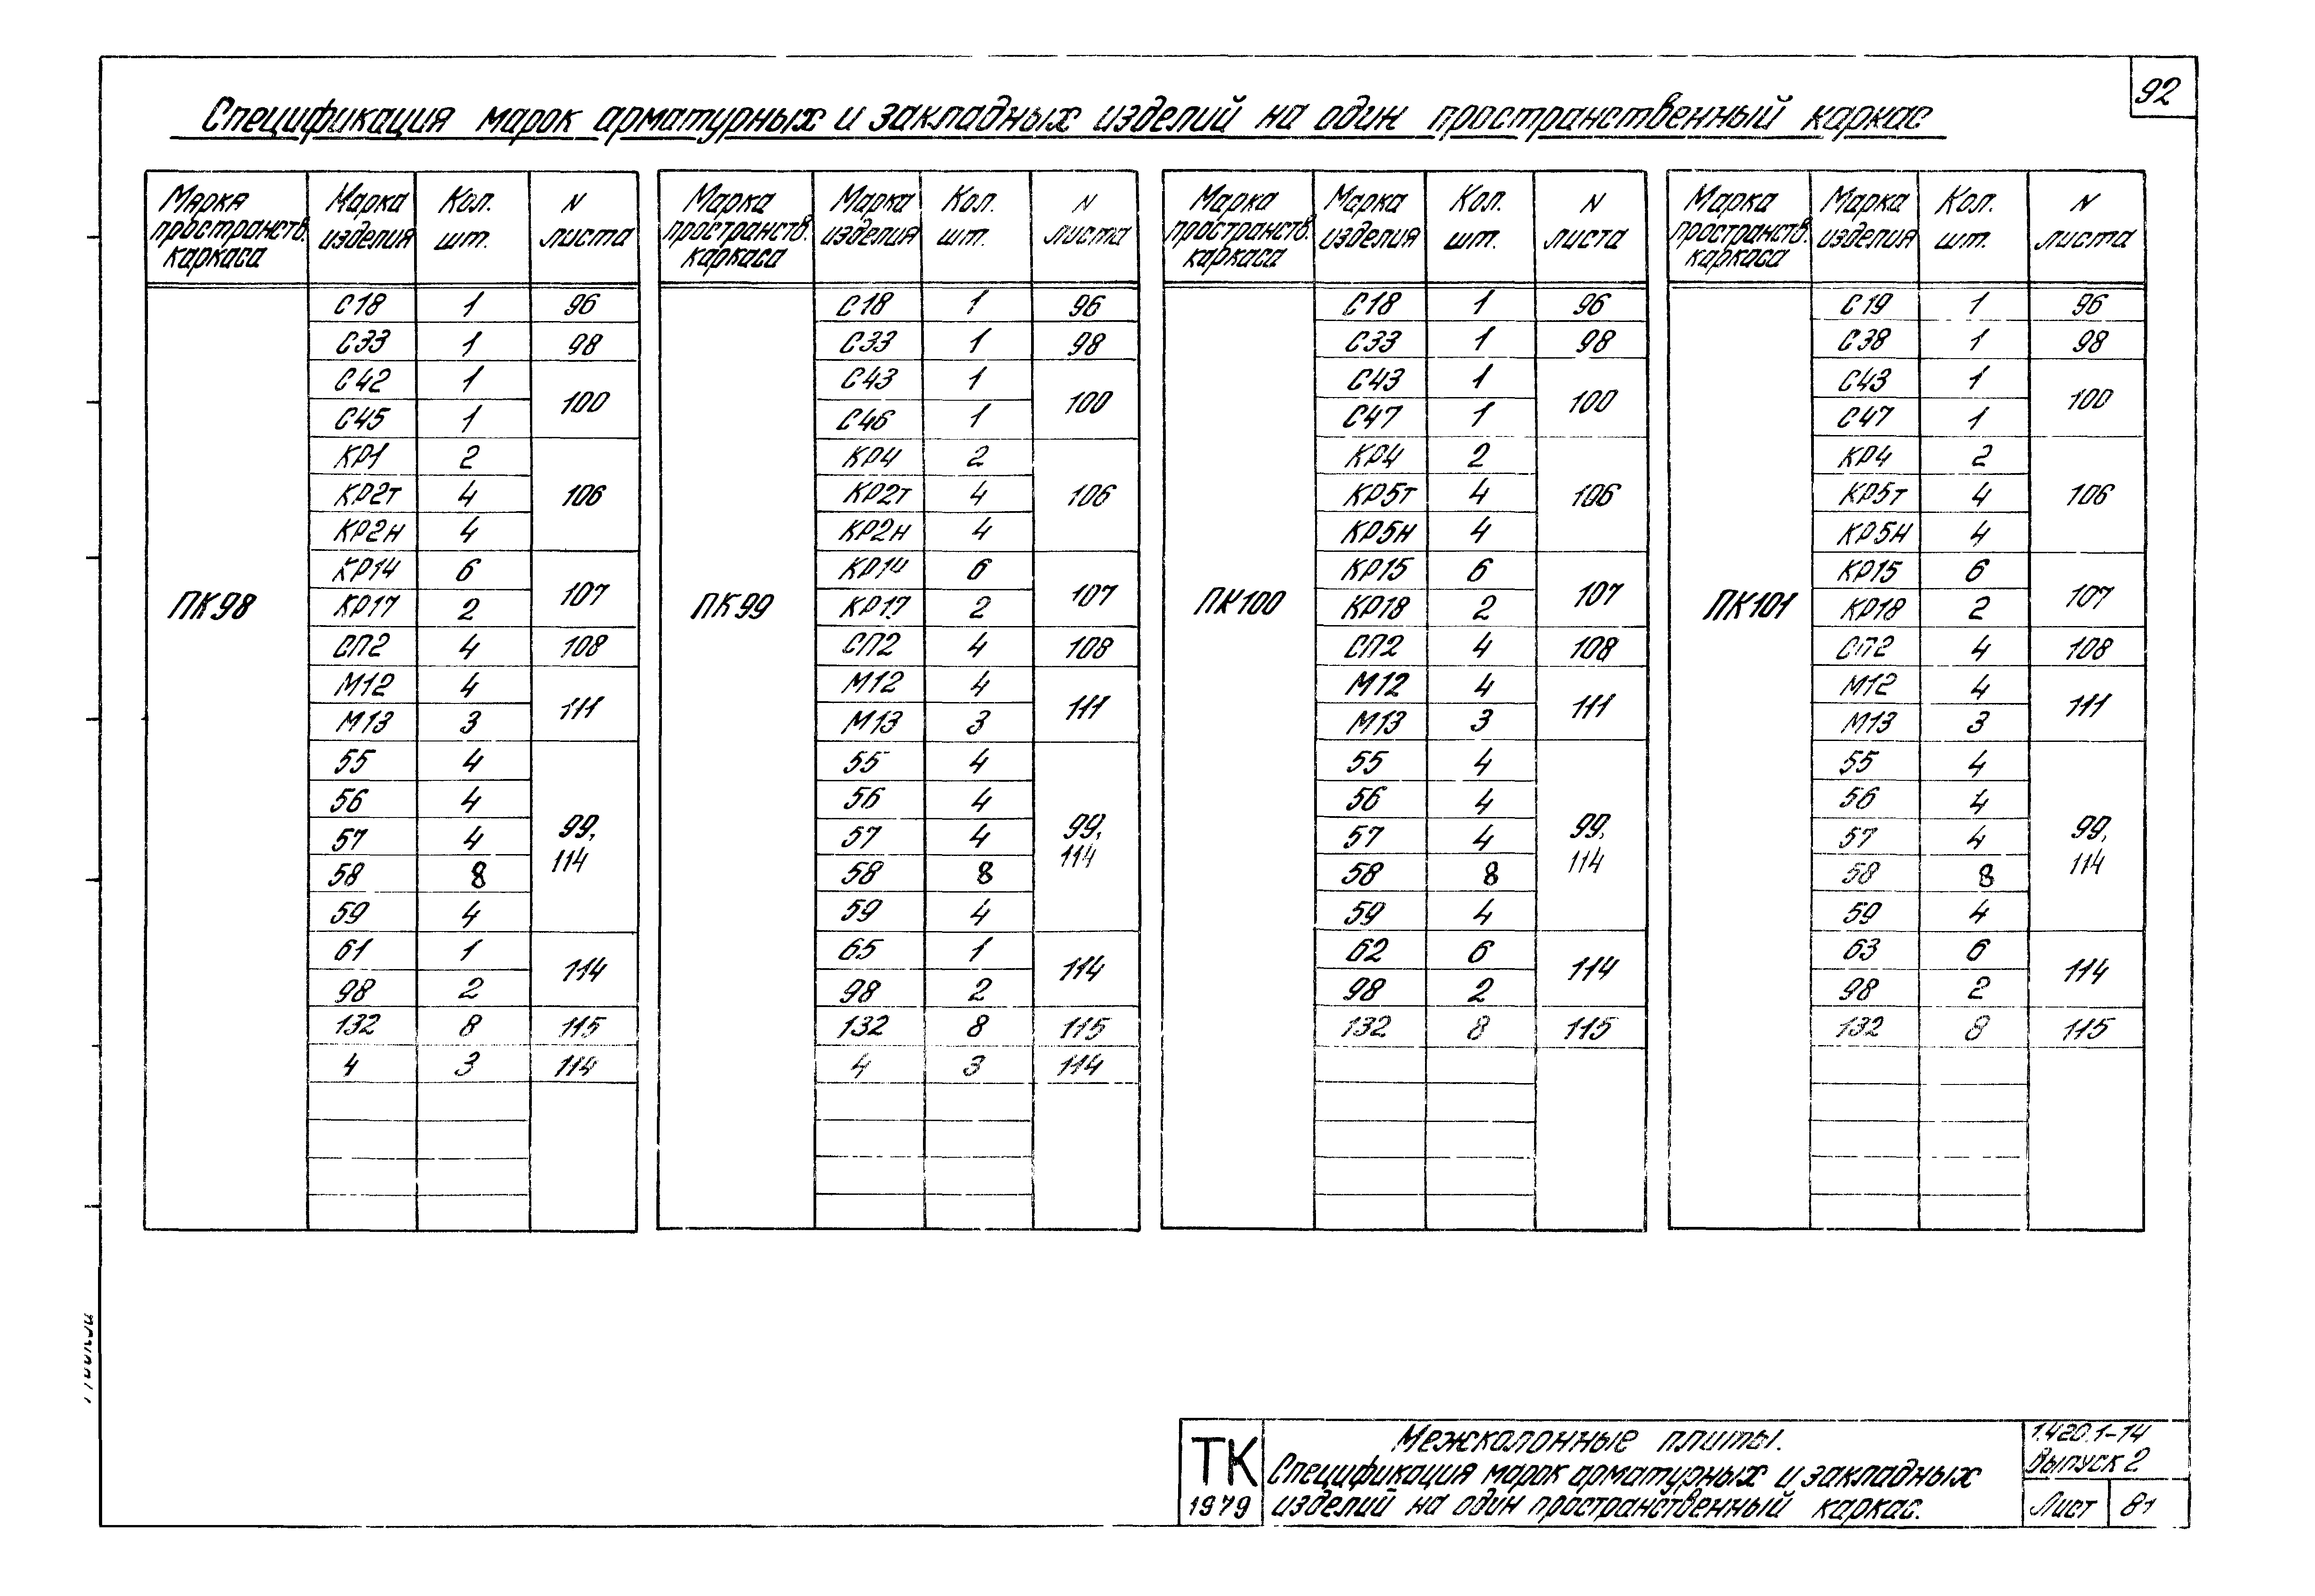 92
Спецификация марок арматурных и закладных изделий на один пространственный каркас
Марка пространств. каркаса | Марка изделия | Кол. шт. | N листа
ПК98
С18 1 96
С33 1 98
С42 1 100
С45 1
КР1 2 106
КР2т 4
КР2н 4
КР14 6 107
КР17 2
СП2 4 108
М12 4 111
М13 3
55 4 99, 114
56 4
57 4
58 8
59 4
61 1 114
98 2
132 8 115
4 3 114
Марка пространств. каркаса | Марка изделия | Кол. шт. | N листа
ПК99
С18 1 96
С33 1 98
С43 1 100
С46 1
КР4 2 106
КР2т 4
КР2н 4
КР14 6 107
КР17 2
СП2 4 108
М12 4 111
М13 3
55 4 99, 114
56 4
57 4
58 8
59 4
65 1 114
98 2
132 8 115
4 3 114
Марка пространств. каркаса | Марка изделия | Кол. шт. | N листа
ПК100
С18 1 96
С33 1 98
С43 1 100
С47 1
КР4 2 106
КР5т 4
КР5н 4
КР15 6 107
КР18 2
СП2 4 108
М12 4 111
М13 3
55 4 99, 114
56 4
57 4
58 8
59 4
62 6 114
98 2
132 8 115
Марка пространств. каркаса | Марка изделия | Кол. шт. | N листа
ПК101
С19 1 96
С38 1 98
С43 1 100
С47 1
КР4 2 106
КР5т 4
КР5н 4
КР15 6 107
КР18 2
СП2 4 108
М12 4 111
М13 3
55 4 99, 114
56 4
57 4
58 8
59 4
63 6 114
98 2
132 8 115
ТК
1979
Межколонные плиты.
Спецификация марок арматурных и закладных
изделий на один пространственный каркас.
1.420.1-14
Выпуск 2
Лист 81